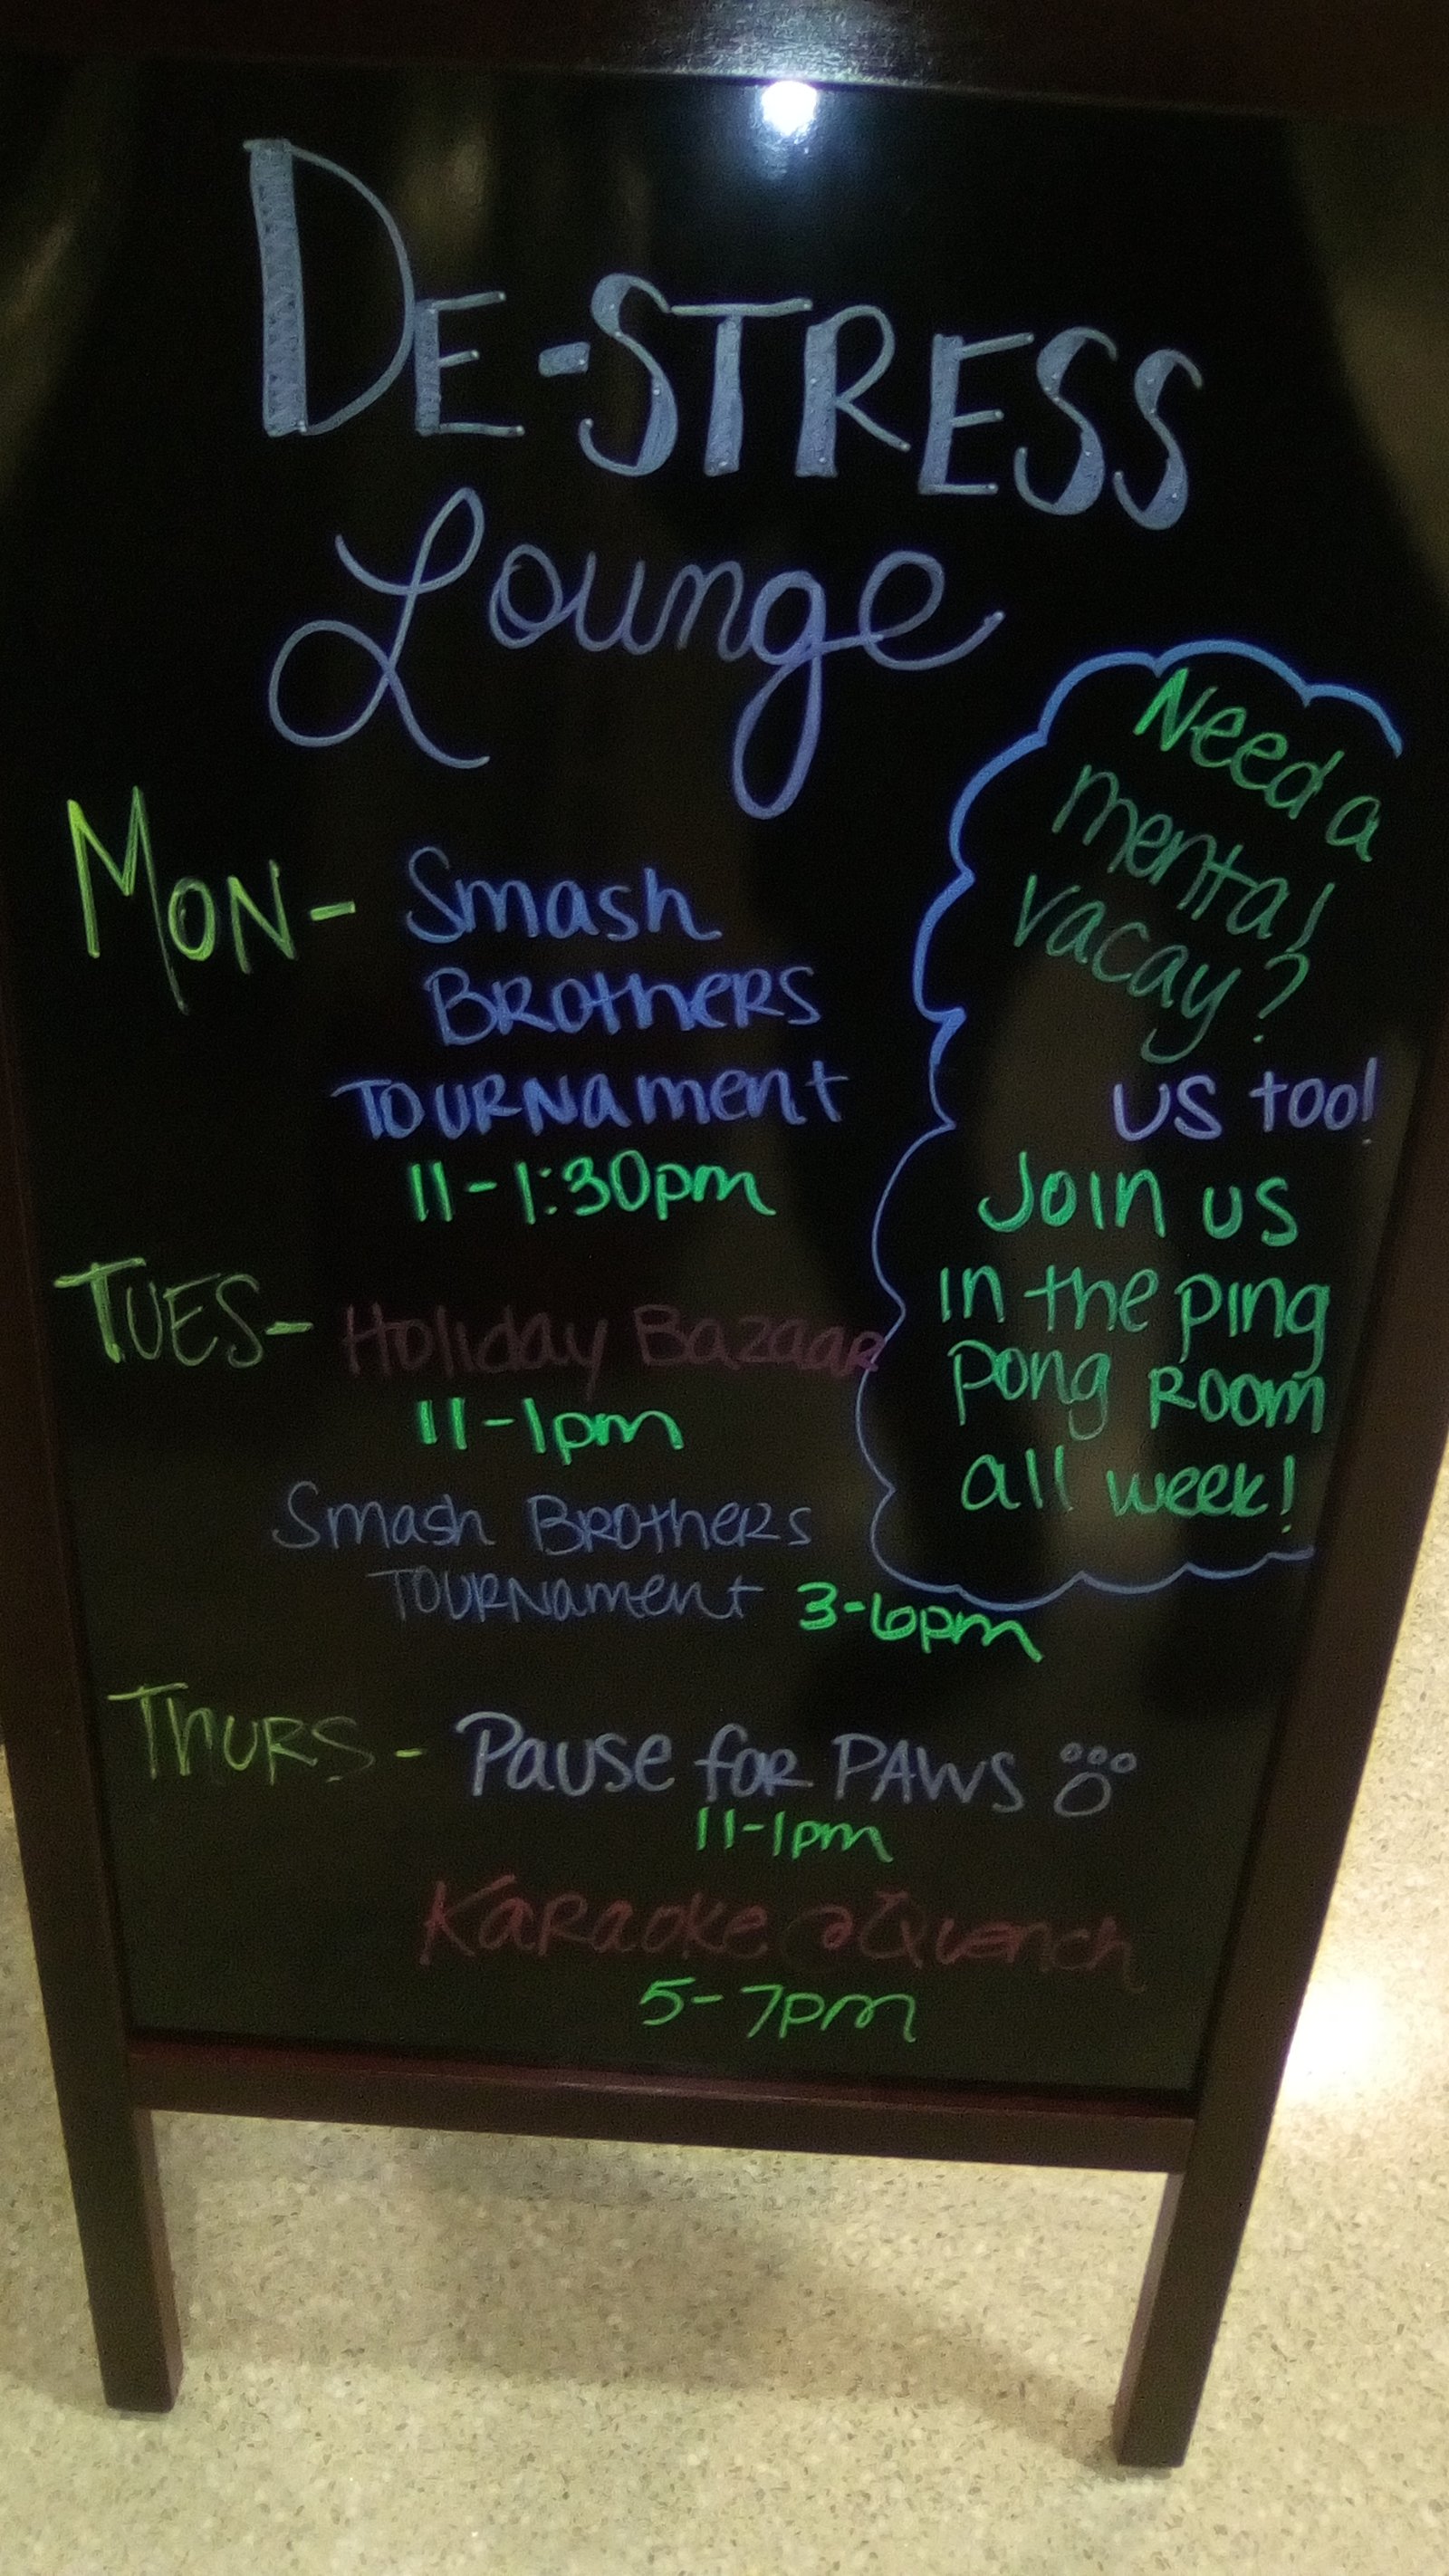 DE-STRESS
Lounge
MON- Smash
BROTHERS
TOURNAMENT
11-1:30pm
TUES- Holiday Bazaar
11-1pm
Smash BROTHERS
TOURNAMENT 3-6pm
THURS- Pause for PAWS
11-1pm
Karaoke @ Quench
5-7pm
Need a
mental
vacay?
us too!
Join us
in the ping
pong room
all week!